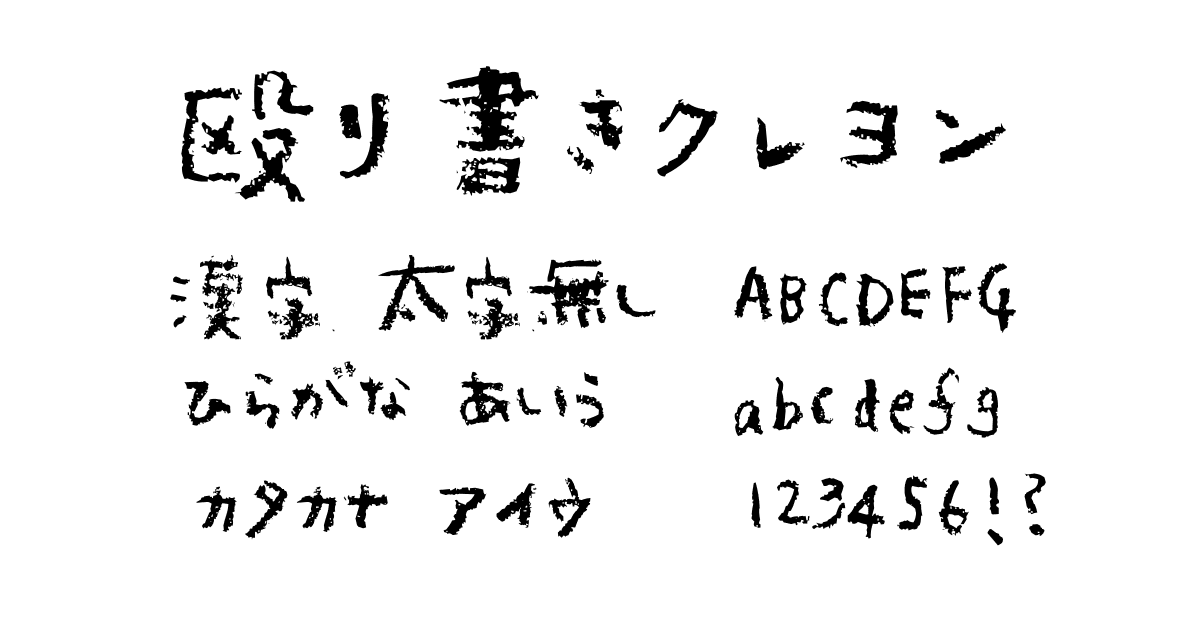 殴り書きクレヨン
漢字 太字無し ABCDEFG
ひらがな あいう abcdefg
カタカナ アイウ 123456!?